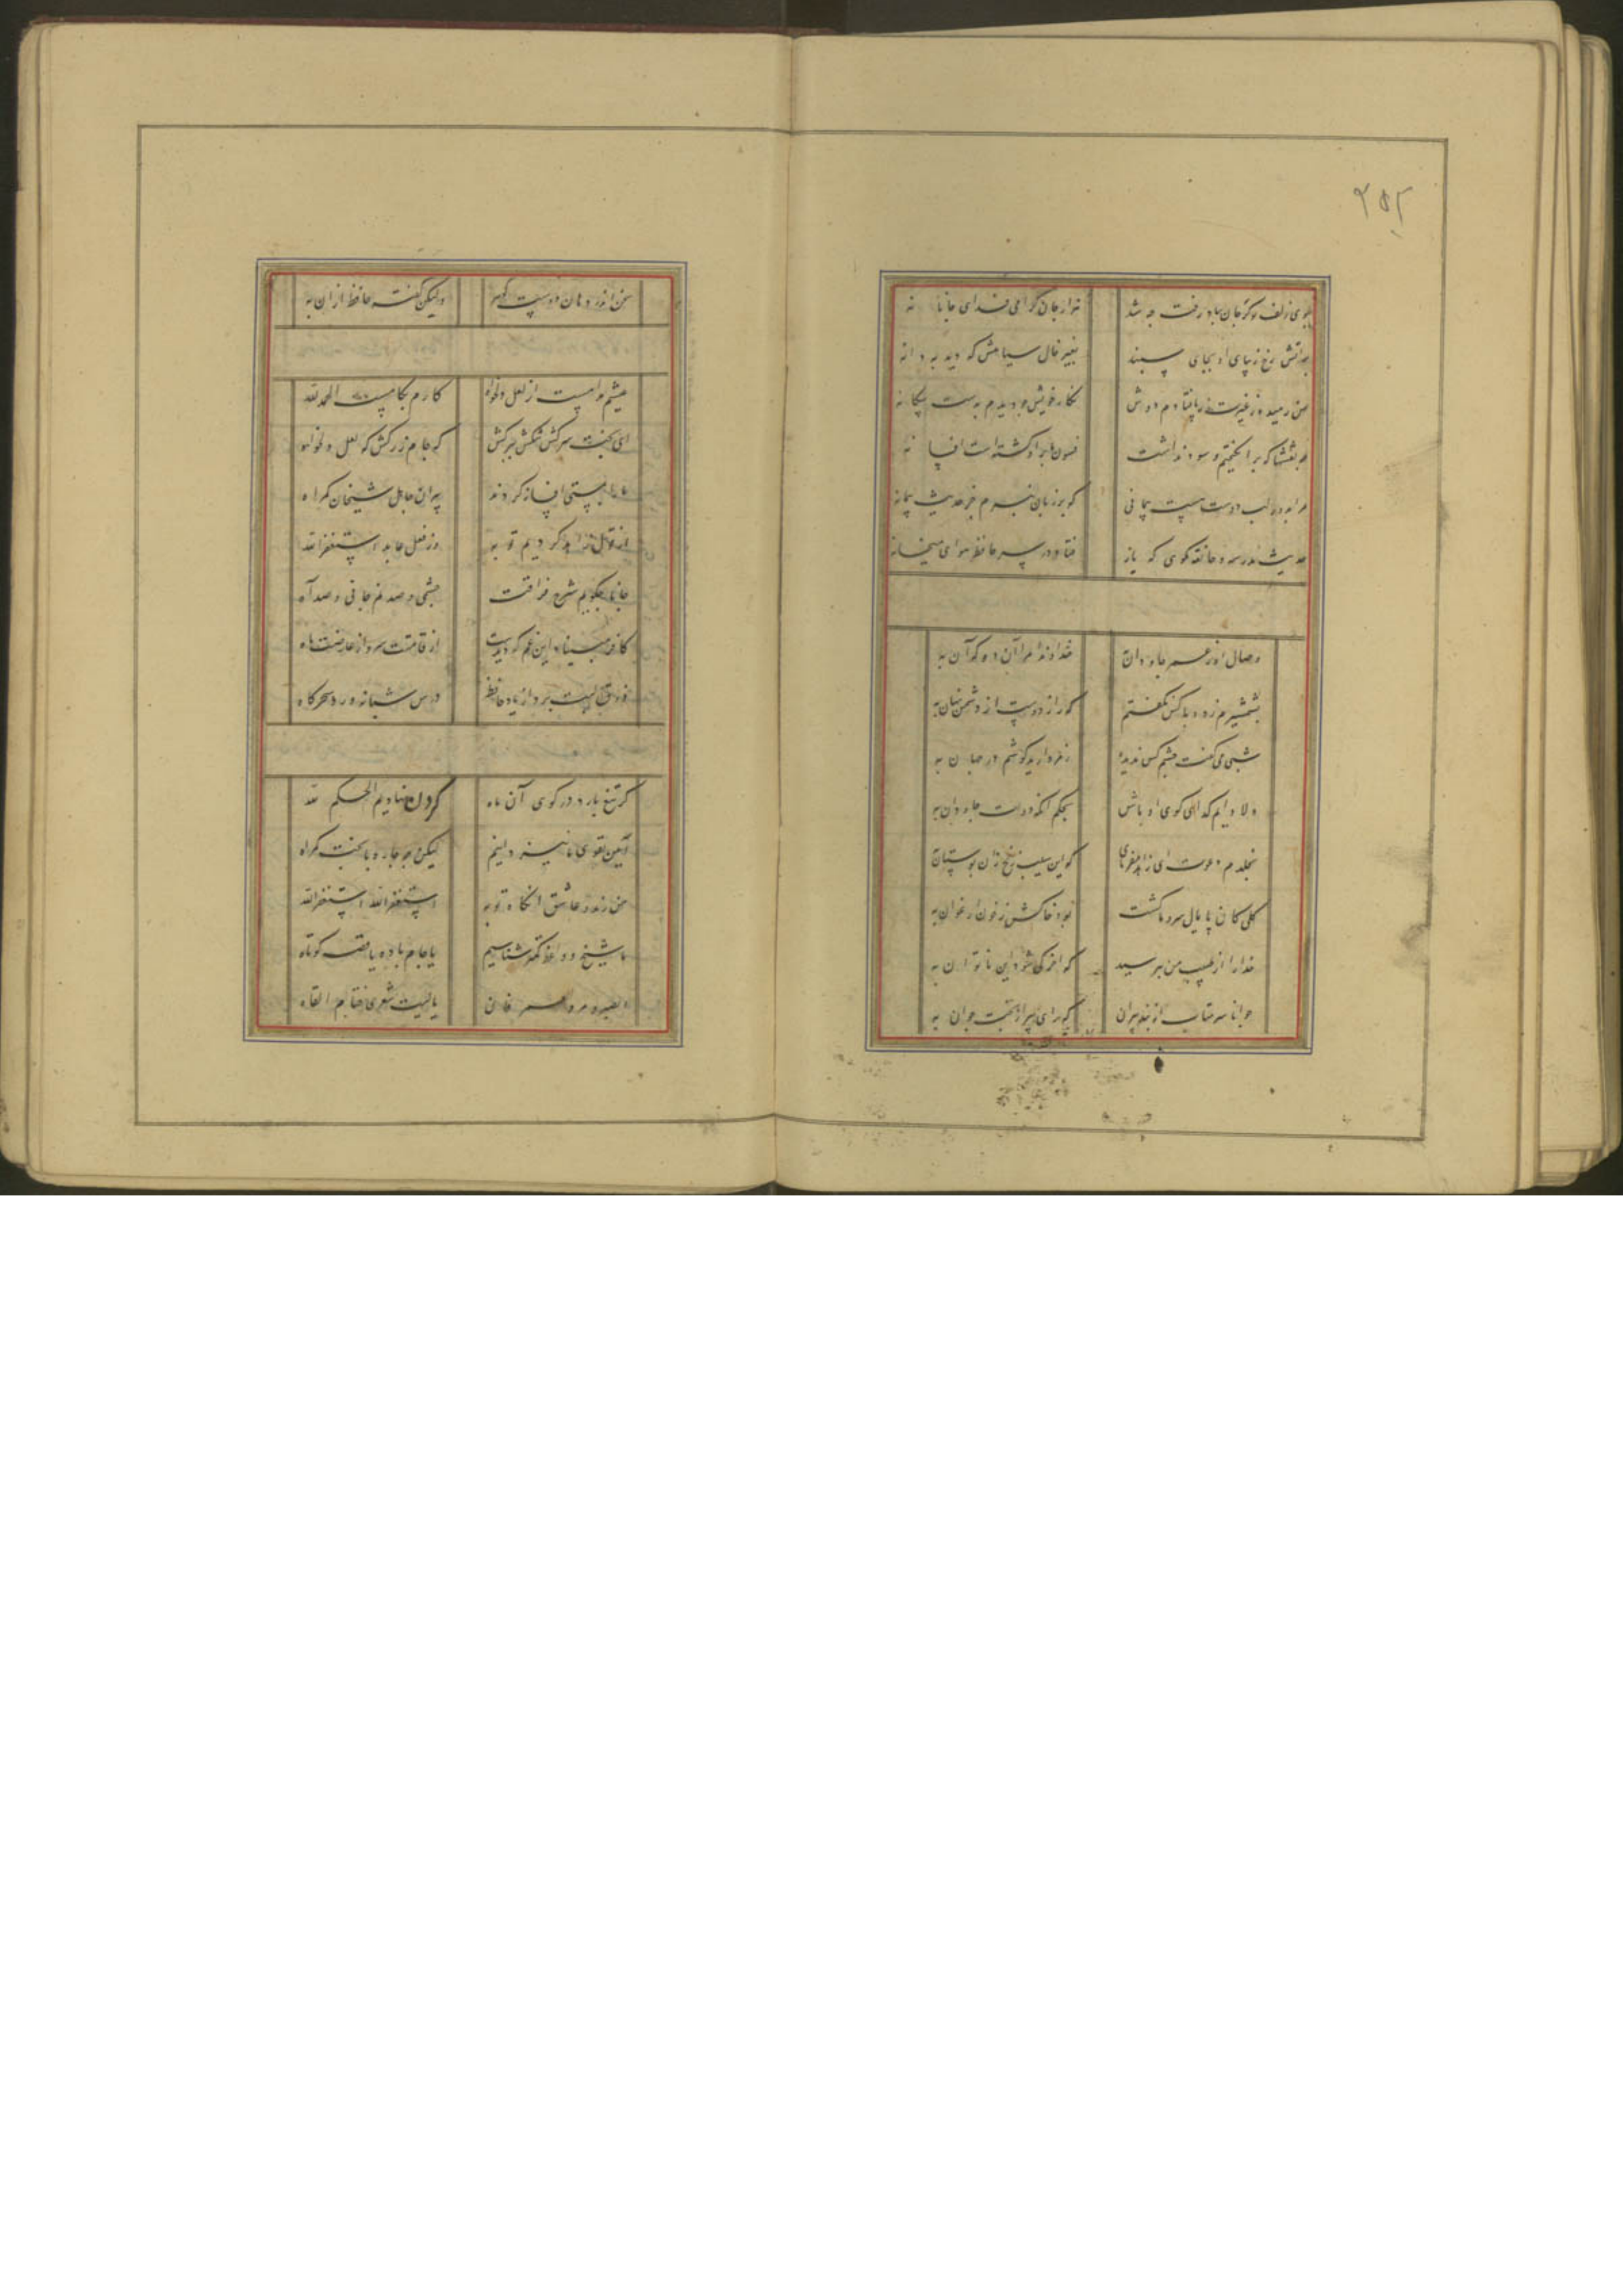 ۲۵۲
ببوی زلف تو گر جان بباد رفت چه شد هزار جان گرامی فدای جانانه
بر آتش رخ زیبای او بجای سپند بغیر خال سیاهش که دید به دانه
من رمیده ز غیرت ز پا فتادم دوش نگار خویش چو دیدم بدست بیگانه
چه نقشها که بر انگیختیم و سود نداشت فسون ما بر او گشته است افسانه
مرا بدور لب دوست هست پیمانی که بر زبان نبرم جز حدیث پیمانه
حدیث مدرسه و خانقه مگوی که باز فتاد در سر حافظ هوای میخانه
وصال او ز عمر جاودان به خداوندا مرا آن ده که آن به
بشمشیرم زد و با کس نگفتم که راز دوست از دشمن نهان به
شبی می‌گفت چشم کس ندیده ز مروارید گوشم در جهان به
دلا دایم گدای کوی او باش بحکم آنکه دولت جاودان به
بخلدم دعوت ای زاهد مفرمای که این سیب زنخ زان بوستان به
گلی کان پایمال سرو ما گشت بود خاکش ز خون ارغوان به
خدا را از طبیب من بپرسید که آخر کی شود این ناتوان به
جوانا سر متاب از پند پیران که رای پیر از بخت جوان به
سخن اندر دهان دوست گوهر ولیکن گفته حافظ از آن به
عیشم مدامست از لعل دلخواه کارم بکامست الحمد لله
ای بخت سرکش تنگش ببر کش گه جام زر کش گه لعل دلخواه
ما را بمستی افسانه کردند پیران جاهل شیخان گمراه
از قول زاهد کردیم توبه وز فعل عابد استغفرالله
جانا چگویم شرح فراقت چشمی و صد نم جانی و صد آه
کافر مبیناد این غم که دیدست از قامتت سرو از عارضت ماه
شوق لبت برد از یاد حافظ درس شبانه ورد سحرگاه
گر تیغ بارد در کوی آن ماه گردن نهادیم الحکم لله
آیین تقوی ما نیز دانیم لیکن چه چاره با بخت گمراه
من رند و عاشق آنگاه توبه استغفرالله استغفرالله
ما شیخ و واعظ کمتر شناسیم یا جام باده یا قصه کوتاه
الصبر مر والعمر فان یا لیت شعری حتام القاه